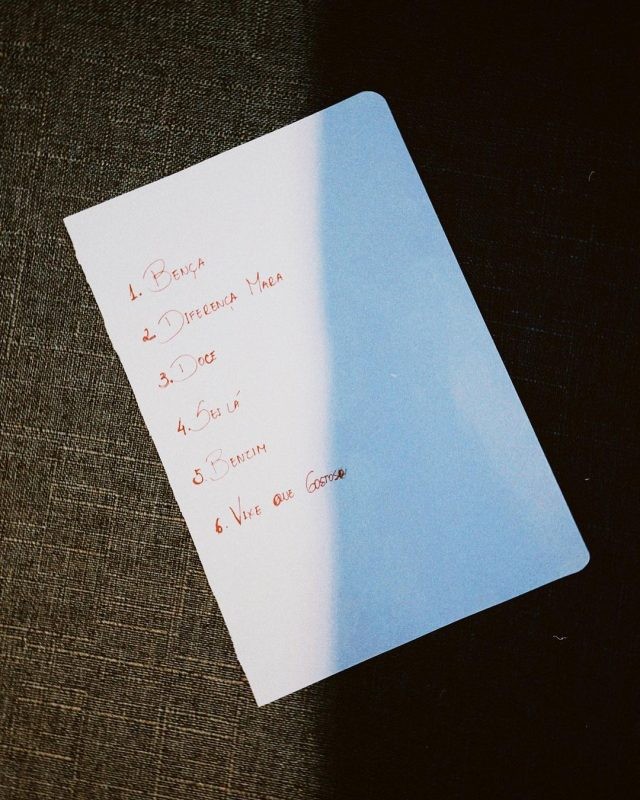 1. BENÇA
2. DIFERENÇA MARA
3. DOCE
4. SEI LÁ
5. BENZIM
6. VIXE QUE GOSTOSO